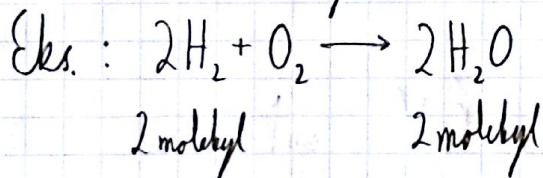 Eks. : 2H₂ + O₂ → 2H₂O
2 molekyl 2 molekyl